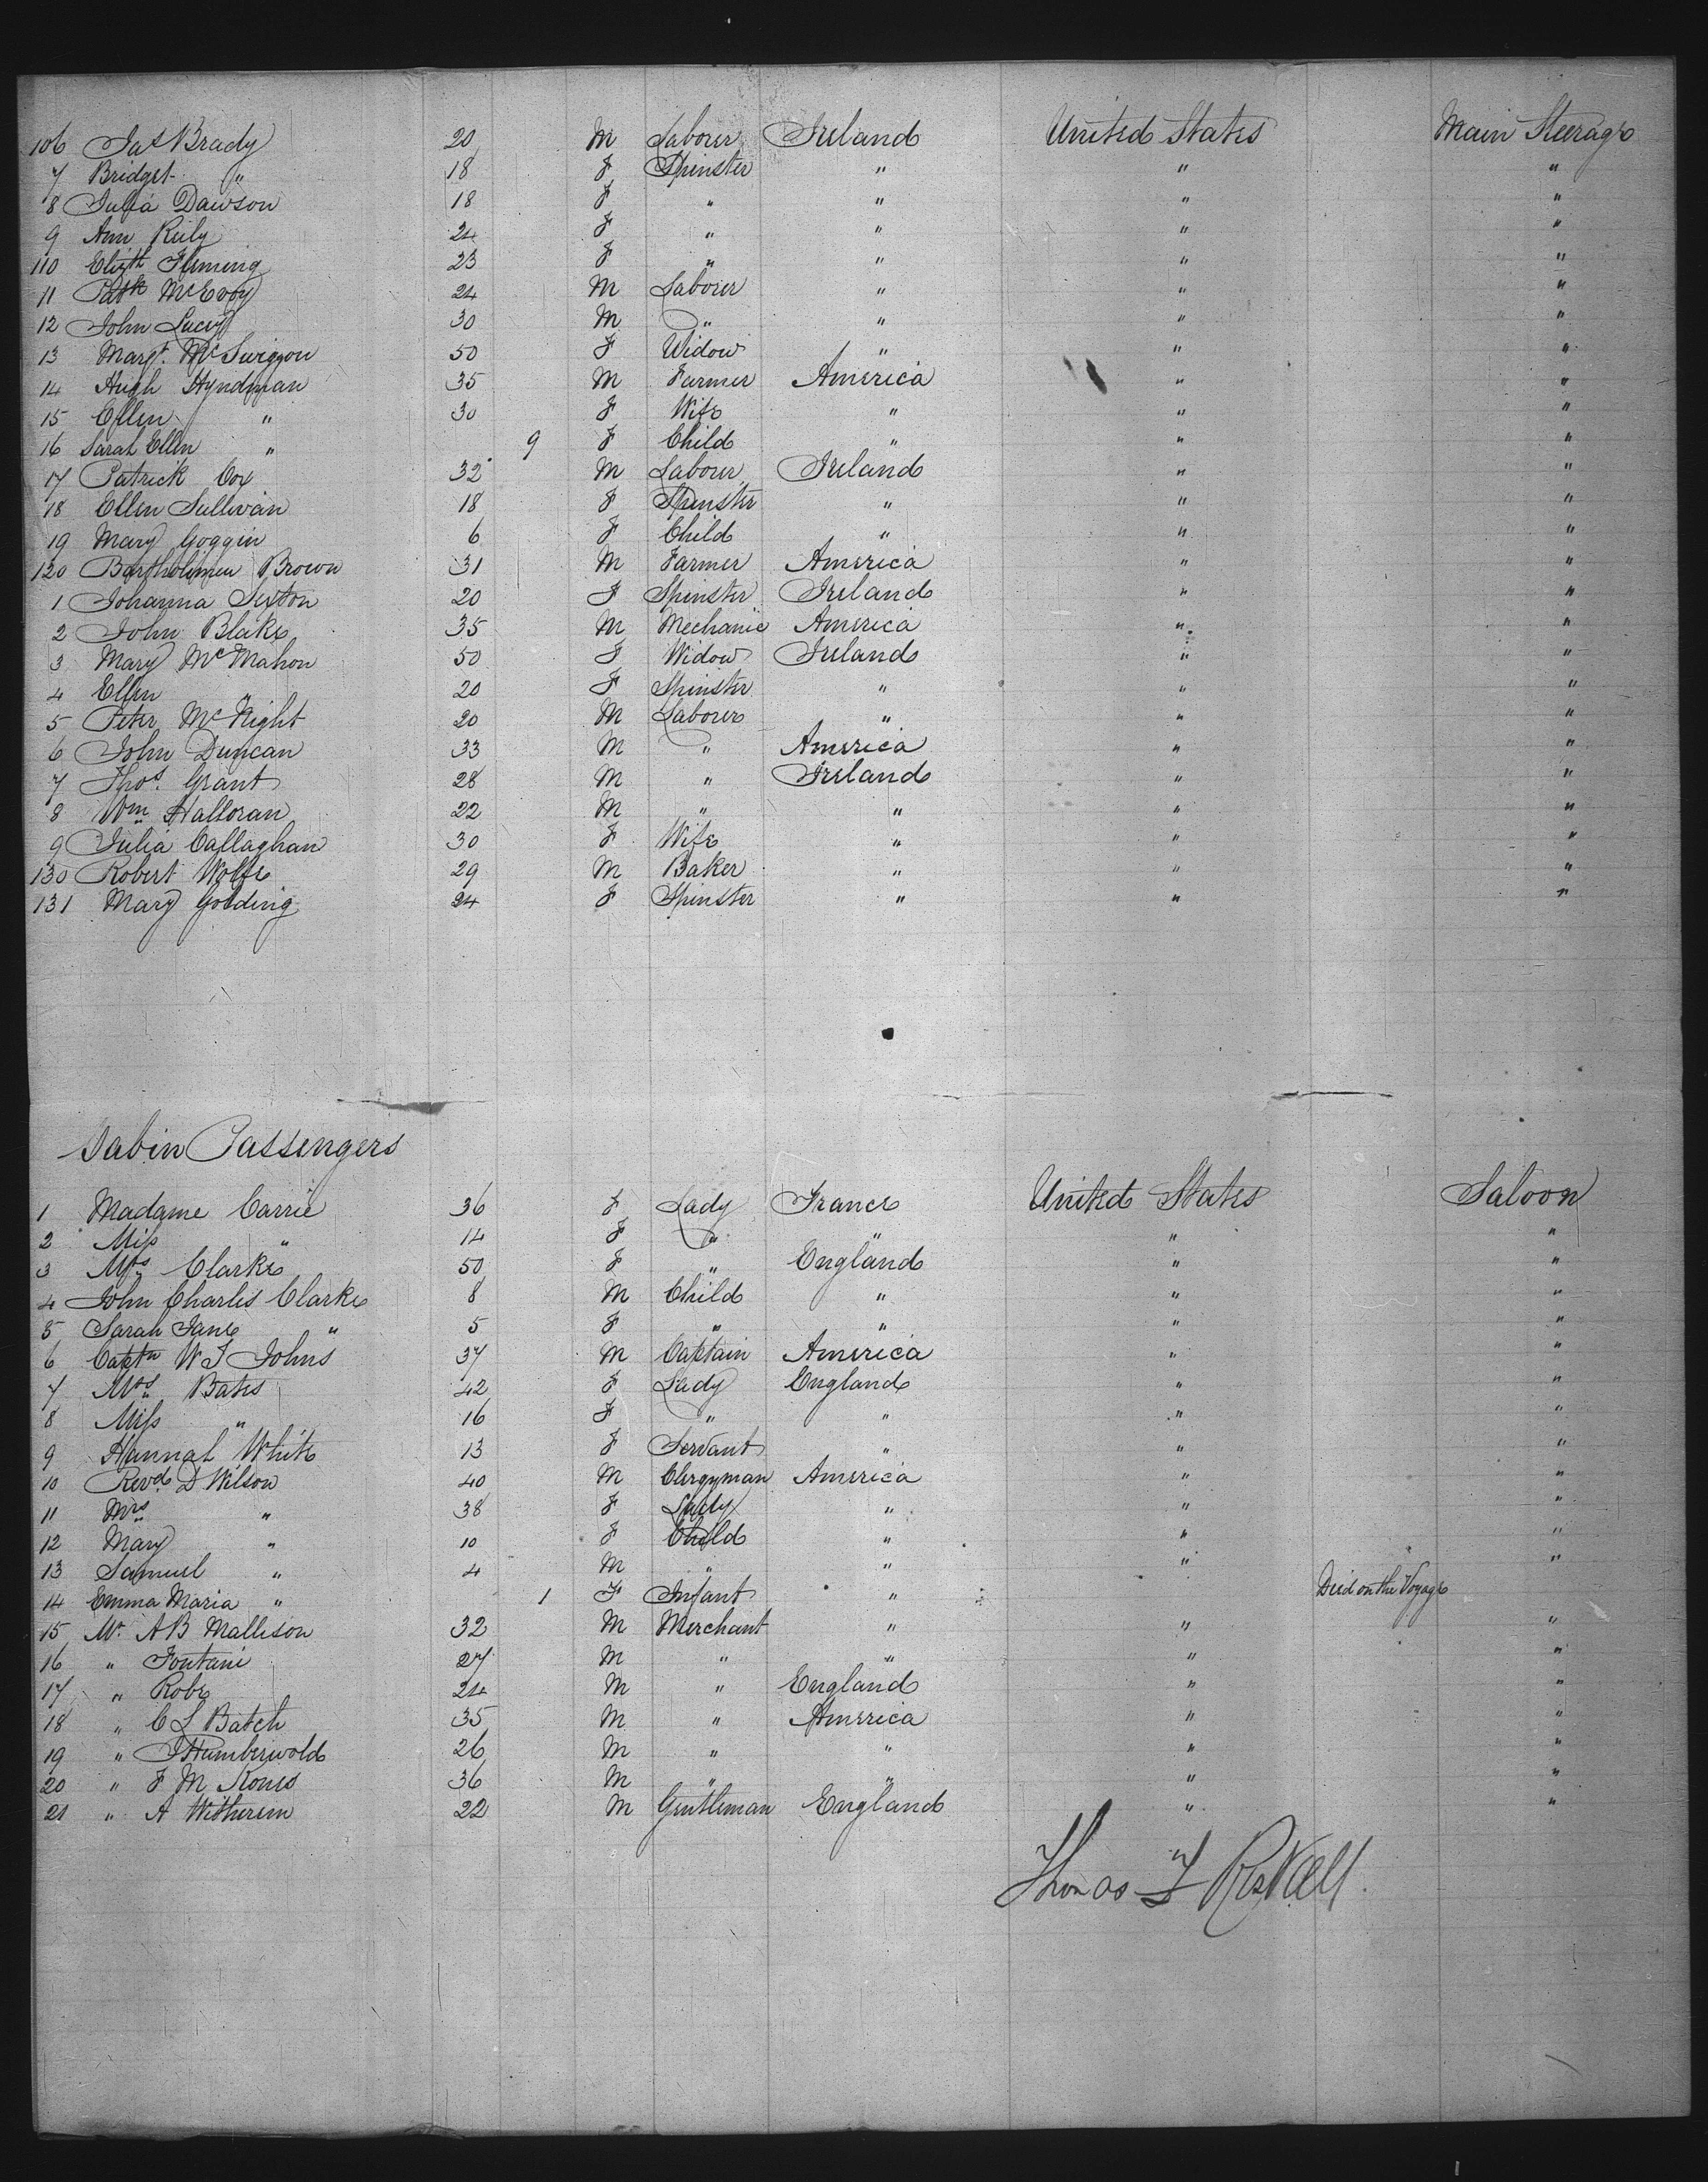 106 Jas Brady 20 M Laborer Ireland United States Main Steerage
7 Bridget " 18 F Spinster " " "
8 Julia Dawson 18 F " " " "
9 Ann Reily 24 F " " " "
110 Elizth Fleming 23 F " " " "
11 Patk McEvoy 24 M Laborer " " "
12 John Lucey 30 M " " " "
13 Margt. McSwiggon 50 F Widow " " "
14 Hugh Hyndman 35 M Farmer America " "
15 Ellen " 30 F Wife " " "
16 Sarah Ellen " 9 F Child " " "
17 Patrick Cox 32 M Laborer Ireland " "
18 Ellen Sullivan 18 F Spinster " " "
19 Mary Goggin 6 F Child " " "
120 Bartholimew Brown 31 M Farmer America " "
1 Johanna Sexton 20 F Spinster Ireland " "
2 John Blake 35 M Mechanic America " "
3 Mary McMahon 50 F Widow Ireland " "
4 Ellen " 20 F Spinster " " "
5 Peter McNight 20 M Laborer " " "
6 John Duncan 33 M " America " "
7 Thos. Grant 28 M " Ireland " "
8 Wm Halloran 22 M " " " "
9 Julia Callaghan 30 F Wife " " "
130 Robert Wolfe 29 M Baker " " "
131 Mary Golding 24 F Spinster " " "
Cabin Passengers
1 Madame Carrie 36 F Lady France United States Saloon
2 Miss " 14 F " " " "
3 Mrs Clarke 50 F " England " "
4 John Charles Clarke 8 M Child " " "
5 Sarah Jane " 5 F " " " "
6 Captn W J Johns 37 M Captain America " "
7 Mrs Bates 42 F Lady England " "
8 Miss " 16 F " " " "
9 Hannah White 13 F Servant " " "
10 Revd D Wilson 40 M Clergyman America " "
11 Mrs " 38 F Lady " " "
12 Mary " 10 F Child " " "
13 Samuel " 4 M " " " "
14 Emma Maria " 1 F Infant " Died on the Voyage
15 Mr. A B Mallison 32 M Merchant " " "
16 " Fontani 27 M " " " "
17 " Robe 24 M " England " "
18 " C L Batch 35 M " America " "
19 " J Humberwold 26 M " " " "
20 " F M Kones 36 M " " " "
21 " A Witherem 22 M Gentleman England " "
Thomas F